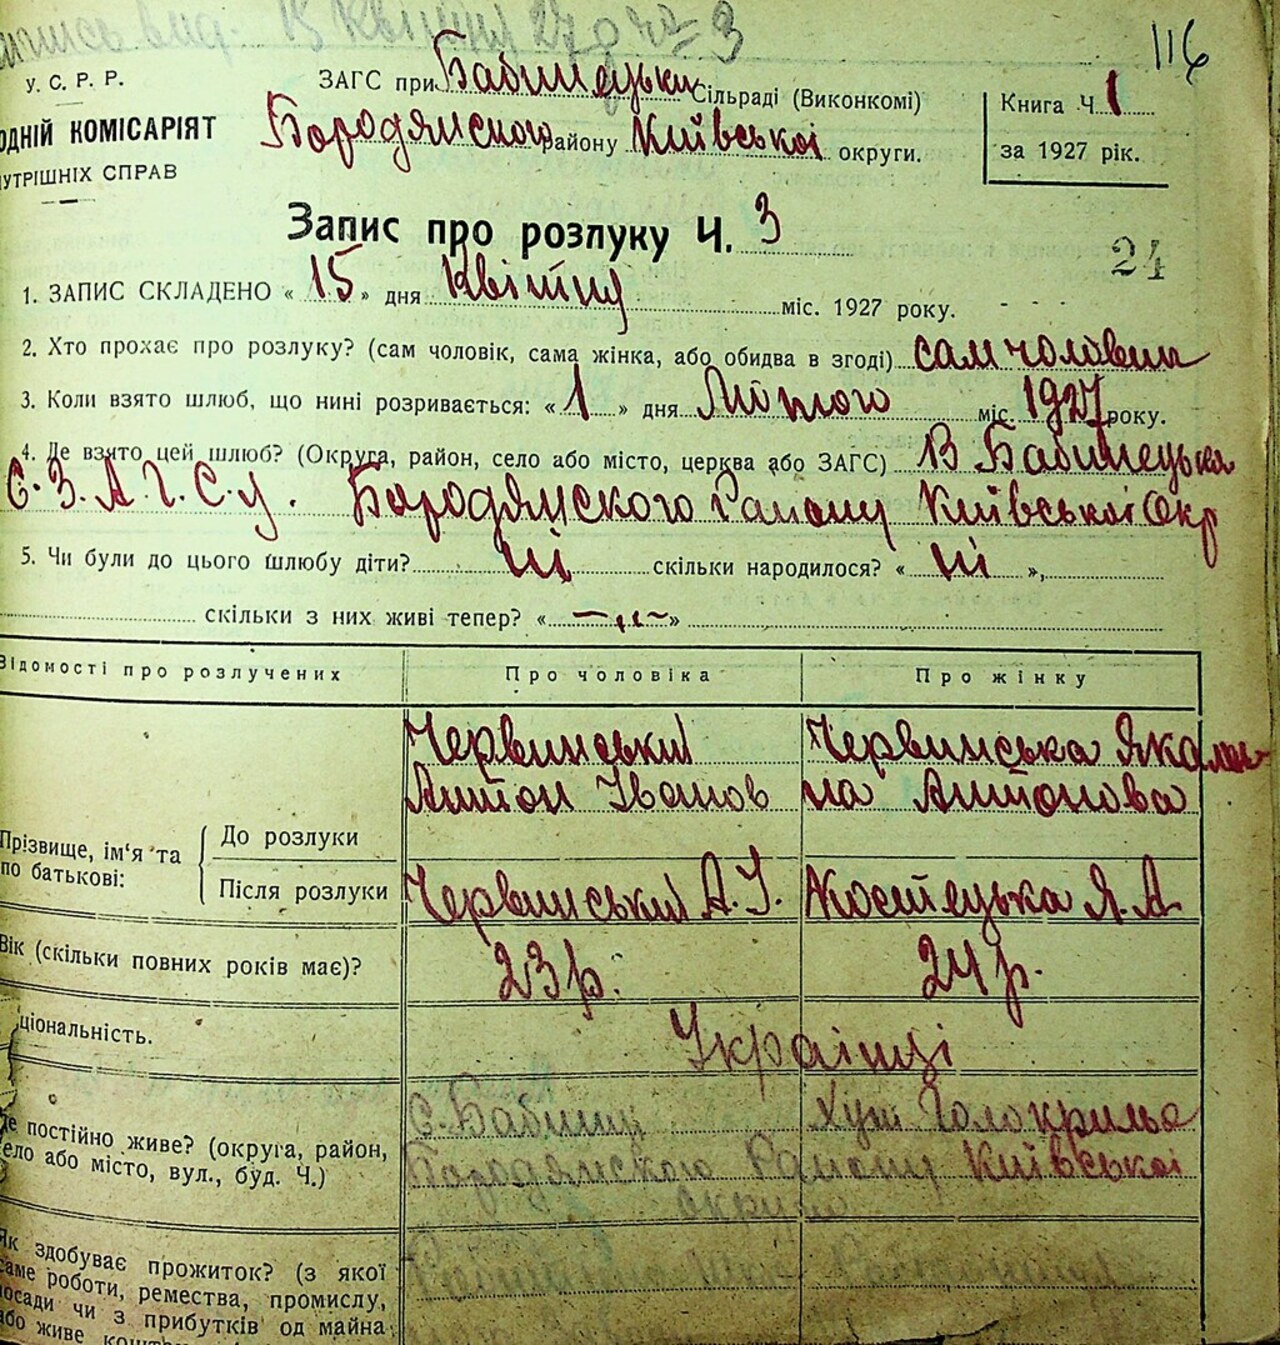 вид. 15 Квітня 27 р № 3
116
У. С. Р. Р.
ЗАГС при Бабинецьки Сільраді (Виконкомі)
Книга Ч. 1
ОДНІЙ КОМІСАРІЯТ
Бородямского району Київської округи.
за 1927 рік.
УТРІШНІХ СПРАВ
Запис про розлуку Ч. 3
24
1. ЗАПИС СКЛАДЕНО « 15 » дня Квітня міс. 1927 року.
2. Хто прохає про розлуку? (сам чоловік, сама жінка, або обидва в згоді) сам чоловік
3. Коли взято шлюб, що нині розривається: « 1 » дня Лютого міс. 1927 року.
4. Де взято цей шлюб? (Округа, район, село або місто, церква або ЗАГС) В Бабинецька
С. З. А. Г. С. у. Бородямского Району Київської Окр
5. Чи були до цього шлюбу діти? ні скільки народилося? « ні »,
скільки з них живі тепер? « —„— »
Відомості про розлучених Про чоловіка Про жінку
Червинський Червинська Якалин-
Антон Іванов на Антонова
Прізвище, ім'я та по батькові: До розлуки
Після розлуки Червинський А. І. Костецька Я. А.
Вік (скільки повних років має)? 23 р. 24 р.
ціональність. Українці
С. Бабинці Хут Голокрилье
де постійно живе? (округа, район, Бородямского Району Київської
село або місто, вул., буд. Ч.) округи
Як здобуває прожиток? (з якої
саме роботи, ремества, промислу,
посади чи з прибутків од майна
або живе